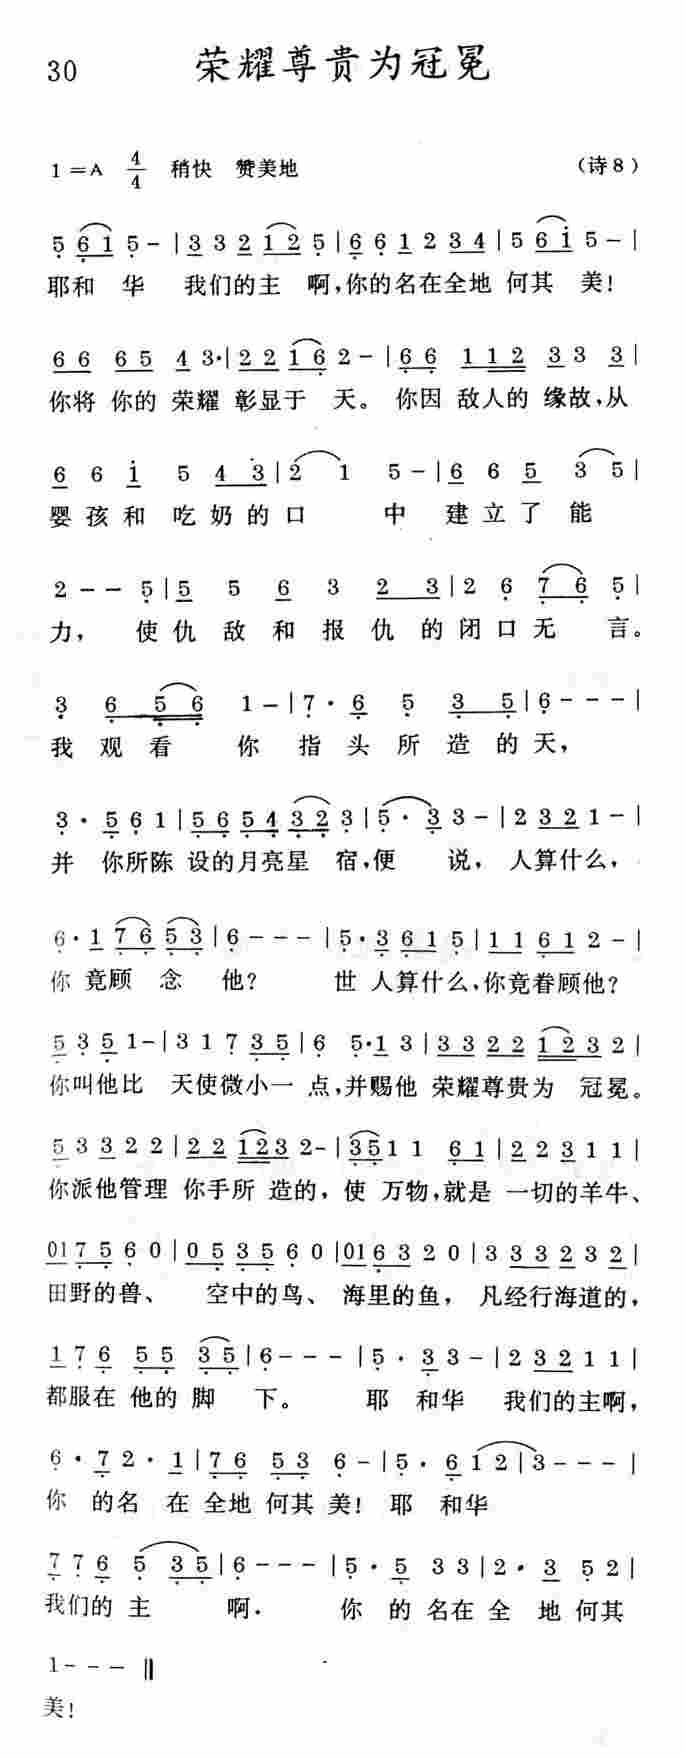 30 荣耀尊贵为冠冕
1=A 4/4 稍快 赞美地 (诗8)
5 6 1 5 - | 3 3 2 1 2 5 | 6 6 1 2 3 4 | 5 6 1 5 - |
耶和 华 我们的主 啊,你的名在全地 何其 美!
6 6 6 5 4 3· | 2 2 1 6 2 - | 6 6 1 1 2 3 3 3 |
你将 你的 荣耀 彰显于 天。 你因 敌人的 缘故,从
6 6 1 5 4 3 | 2 1 5 - | 6 6 5 3 5 |
婴孩和吃奶的口 中 建立了能
2 - - 5 | 5 5 6 3 2 3 | 2 6 7 6 5 |
力, 使仇敌和报仇的闭口无 言。
3 6 5 6 1 - | 7 · 6 5 3 5 | 6 - - - |
我观看 你指头所造的天,
3 · 5 6 1 | 5 6 5 4 3 2 3 | 5 · 3 3 - | 2 3 2 1 - |
并 你所陈 设的月亮星 宿,便 说, 人算什么,
6 · 1 7 6 5 3 | 6 - - - | 5 · 3 6 1 5 | 1 1 6 1 2 - |
你 竟顾 念 他? 世 人算什么,你竟眷顾他?
5 3 5 1 - | 3 1 7 3 5 | 6 5 · 1 3 | 3 3 2 2 1 2 3 2 |
你叫他比 天使微小一 点,并赐他 荣耀尊贵为 冠冕。
5 3 3 2 2 | 2 2 1 2 3 2 - | 3 5 1 1 6 1 | 2 2 3 1 1 |
你派他管理 你手所 造的, 使 万物,就是 一切的羊牛、
0 1 7 5 6 0 | 0 5 3 5 6 0 | 0 1 6 3 2 0 | 3 3 3 2 3 2 |
田野的兽、 空中的鸟、 海里的鱼, 凡经行海道的,
1 7 6 5 5 3 5 | 6 - - - | 5 · 3 3 - | 2 3 2 1 1 |
都服在 他的 脚 下。 耶 和华 我们的主啊,
6 · 7 2 · 1 | 7 6 5 3 6 - | 5 · 6 1 2 | 3 - - - |
你 的名 在 全地 何其 美! 耶 和华
7 7 6 5 3 5 | 6 - - - | 5 · 5 3 3 | 2 · 3 5 2 |
我们的 主 啊. 你 的 名在 全 地 何其
1 - - - ‖
美!